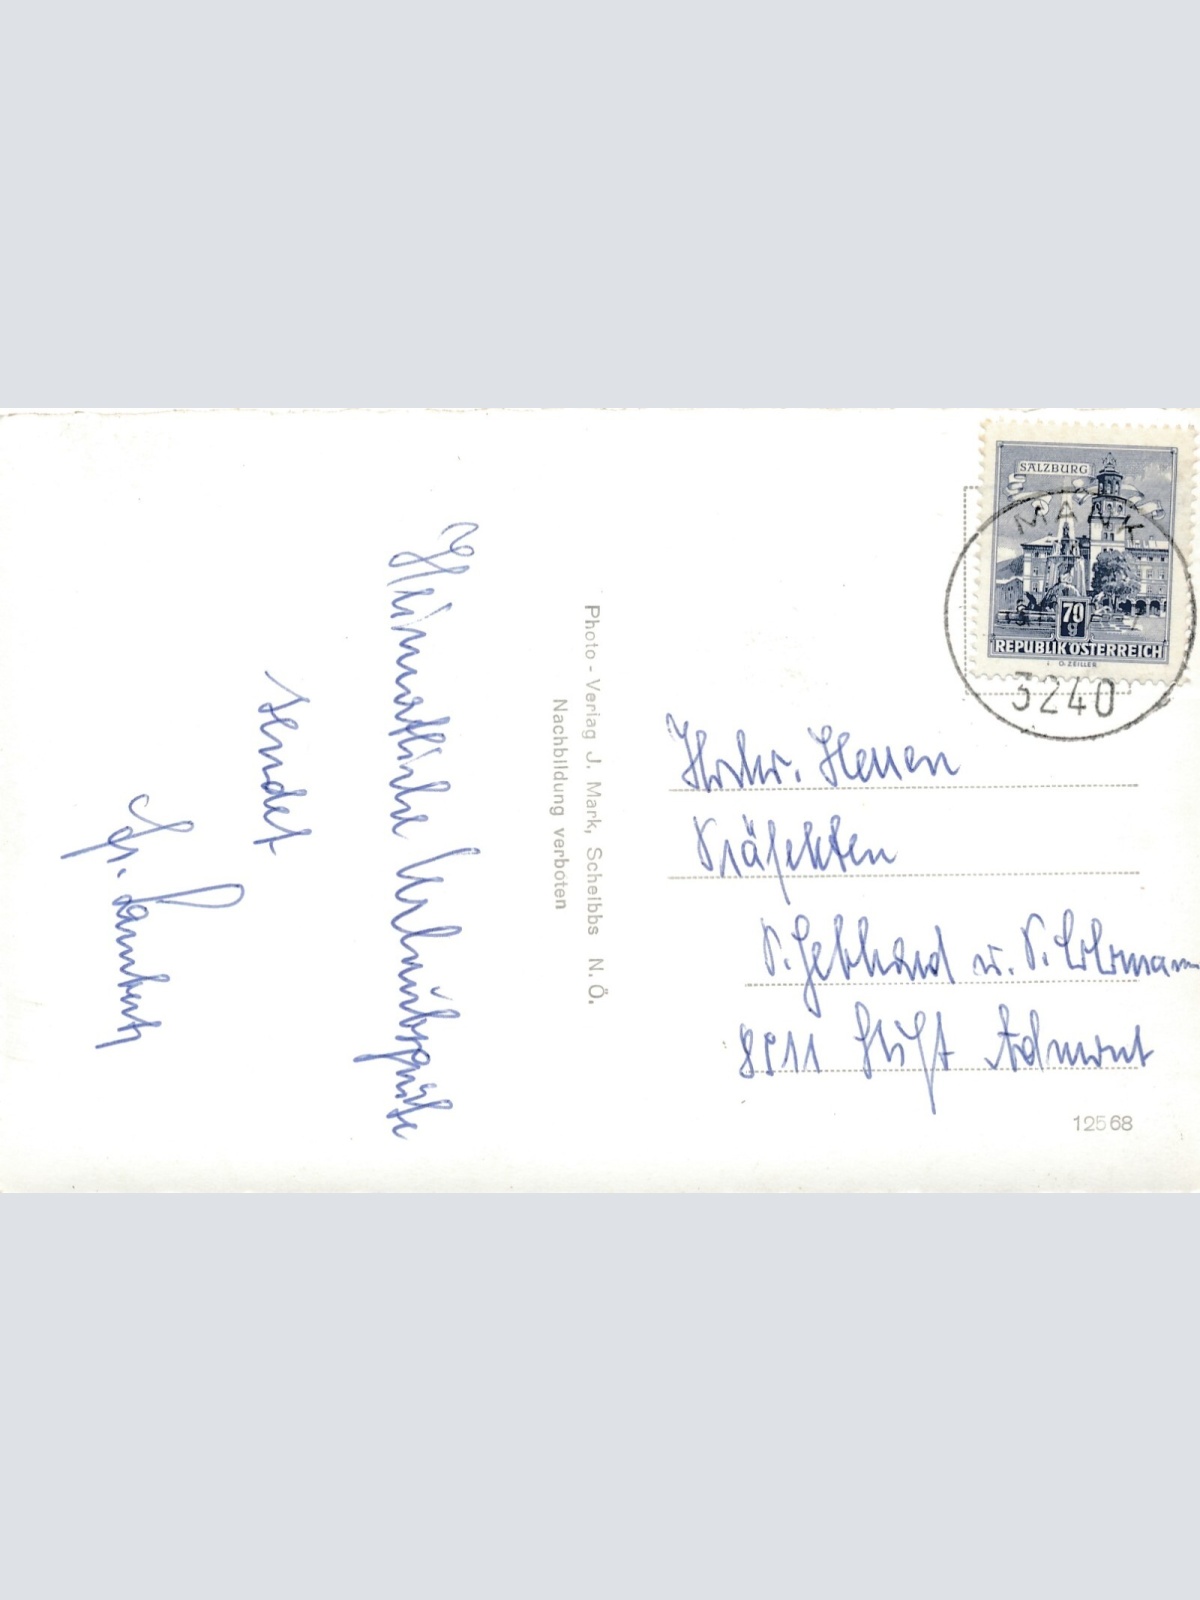 Heimatliche Urlaubsgrüße
sendet
Photo - Verlag J. Mark, Scheibbs N. Ö.
Nachbildung verboten
SALZBURG
MANK
70
g
REPUBLIK ÖSTERREICH
O. ZEILLER
3240
Hochw. Herren
Präfekten
P. Gebhard u. P.
8911 Stift Admont
12568